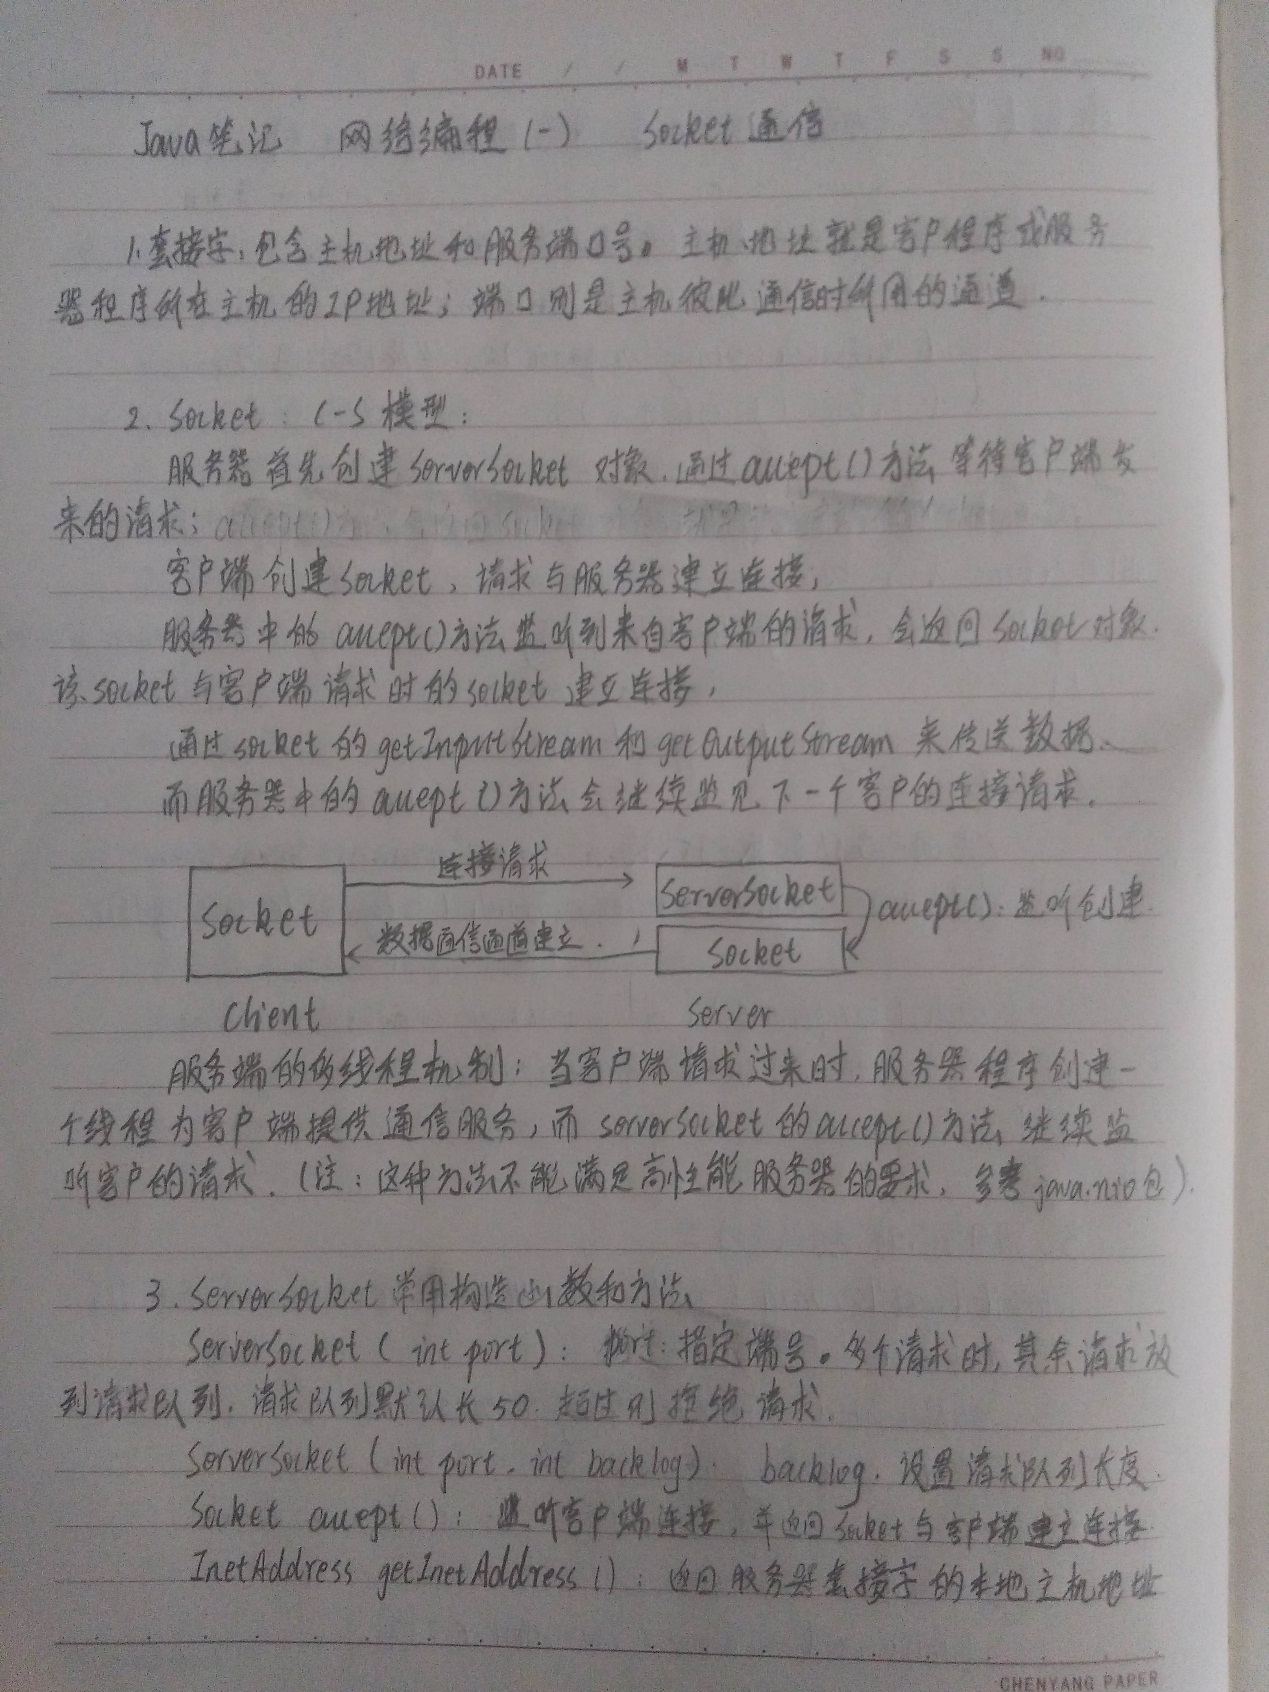 DATE / / M T W T F S S NO
Java笔记 网络编程(一) Socket通信
1.套接字:包含主机地址和服务端口号。主机地址就是客户程序或服务
器程序所在主机的IP地址;端口则是主机彼此通信时所用的通道.
2. Socket: C-S 模型:
服务器首先创建ServerSocket 对象.通过accept()方法等待客户端发
来的请求;
客户端创建Socket,请求与服务器建立连接,
服务器中的 accept()方法监听到来自客户端的请求,会返回Socket对象.
该socket与客户端请求时的socket 建立连接,
通过socket 的getInputStream 和getOutputStream 来传送数据.
而服务器中的accept()方法会继续监见下一个客户的连接请求.
连接请求
Socket ServerSocket accept():监听创建.
数据通信通道建立.
Socket
Client Server
服务端的多线程机制:当客户端请求过来时.服务器程序创建一
个线程为客户端提供通信服务,而 serversocket 的accept()方法继续监
听客户的请求.(注:这种方法不能满足高性能服务器的要求,参考java.nio包).
3. ServerSocket常用构造函数和方法
ServerSocket( int port): port:指定端号。多个请求时,其余请求放
到请求队列.请求队列默认长50.超过则拒绝请求.
ServerSocket (int port, int backlog). backlog.设置请求队列长度.
Socket accept(): 监听客户端连接,并返回Socket与客户端建立连接
InetAddress getInetAddress():返回服务器套接字的本地主机地址
CHENYANG PAPER